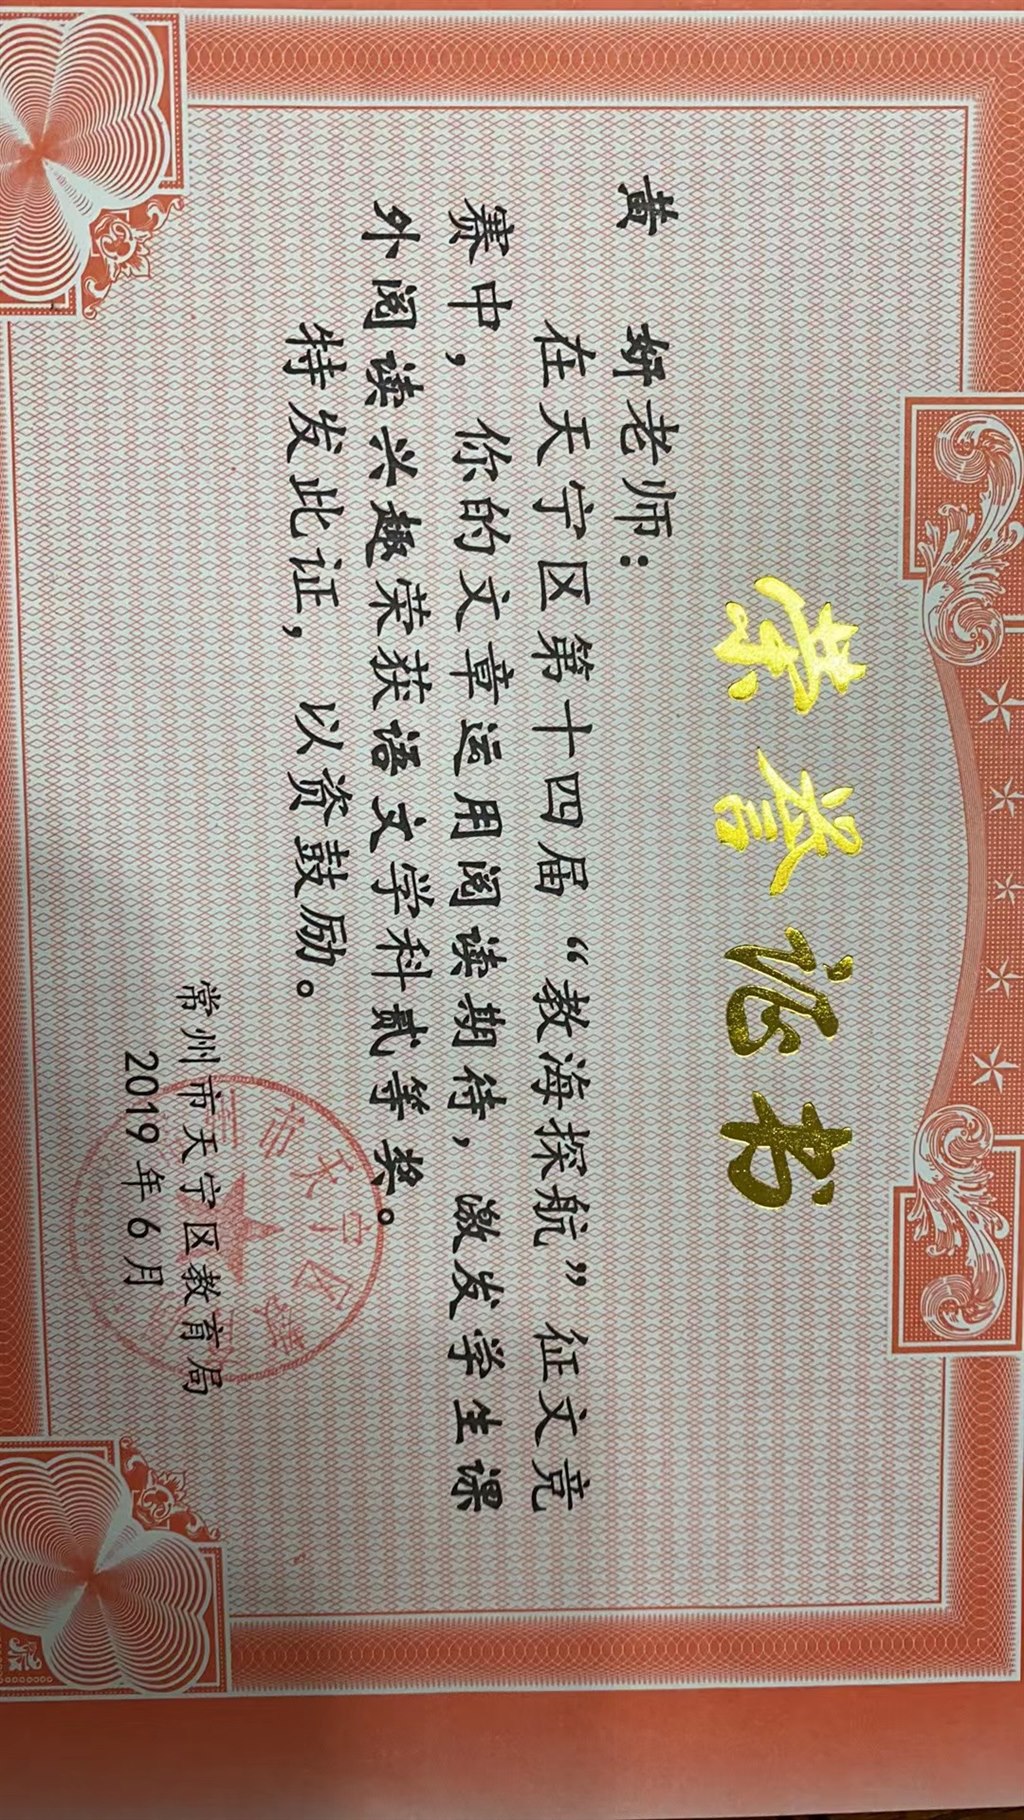 荣誉证书
黄 妍老师：
在天宁区第十四届“教海探航”征文竞
赛中，你的文章运用阅读期待，激发学生课
外阅读兴趣荣获语文学科贰等奖。
特发此证，以资鼓励。
常州市天宁区教育局
2019年6月